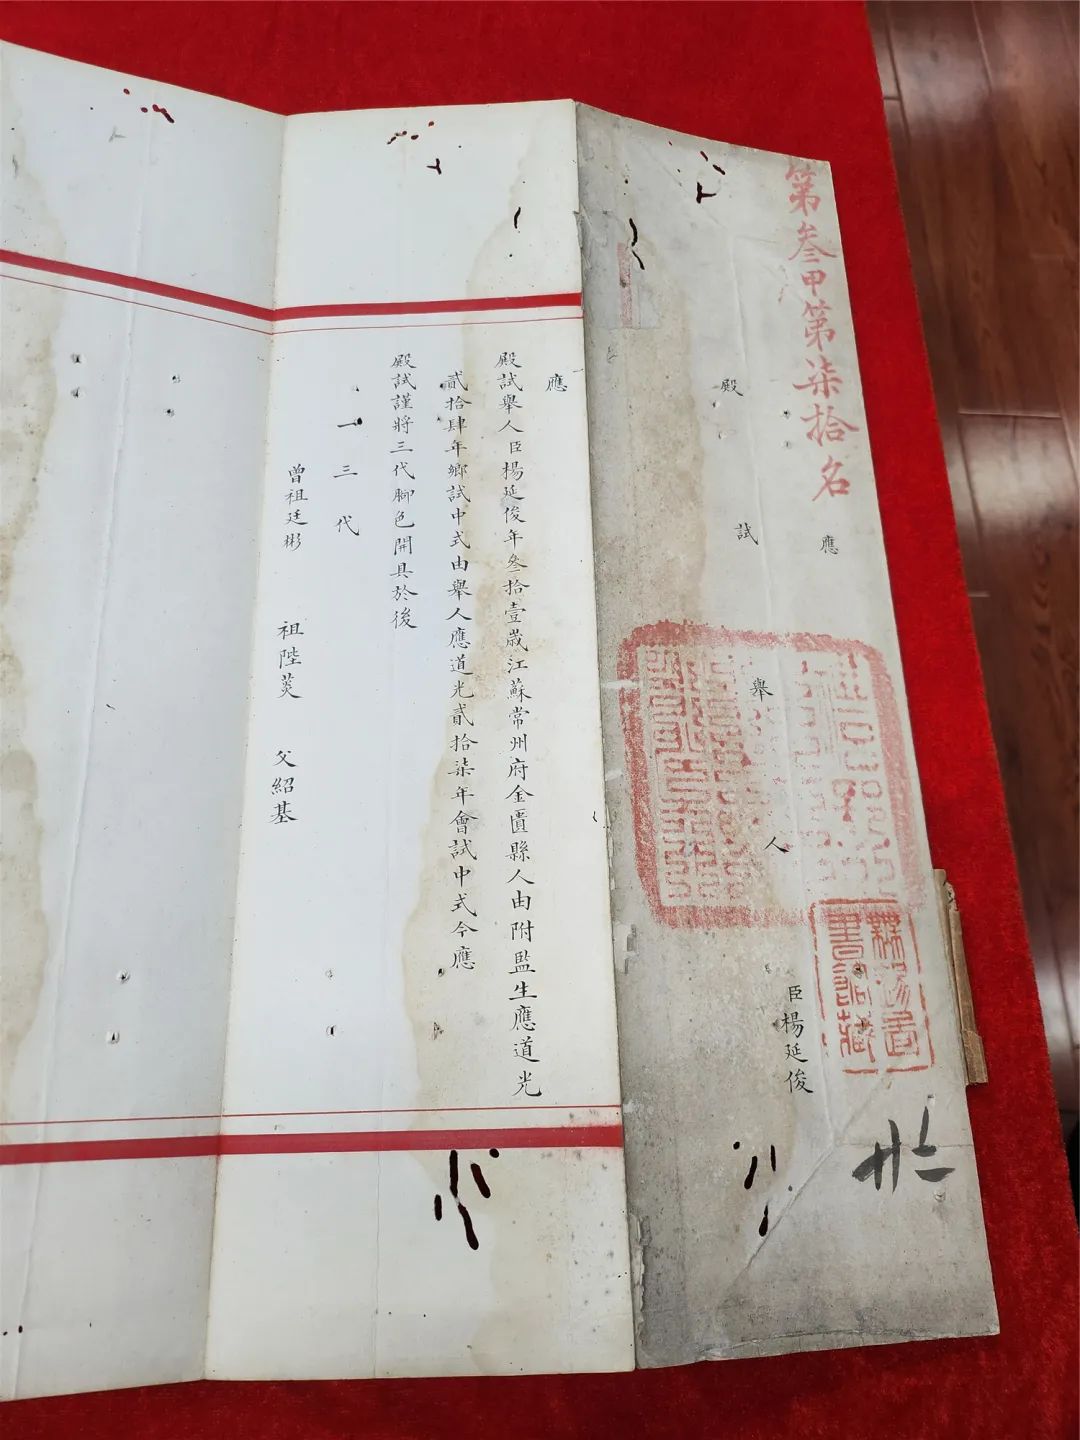 第叁甲第柒拾名
應
殿試舉人臣楊延俊
應
殿試舉人臣楊延俊年叁拾壹歲江蘇常州府金匱縣人由附監生應道光
貳拾肆年鄉試中式由舉人應道光貳拾柒年會試中式今應
殿試謹將三代腳色開具於後
一三代
曾祖廷彬 祖陛蓂 父紹基